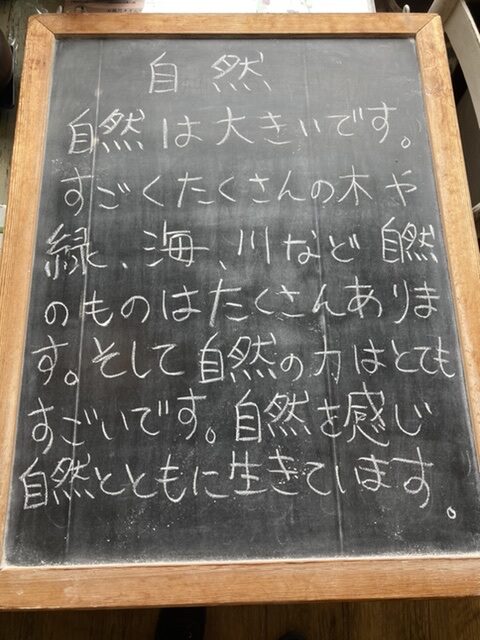 自然
自然は大きいです。
すごくたくさんの木や
緑、海、川など自然
のものはたくさんありま
す。そして自然の力はとても
すごいです。自然を感じ
自然とともに生きています。